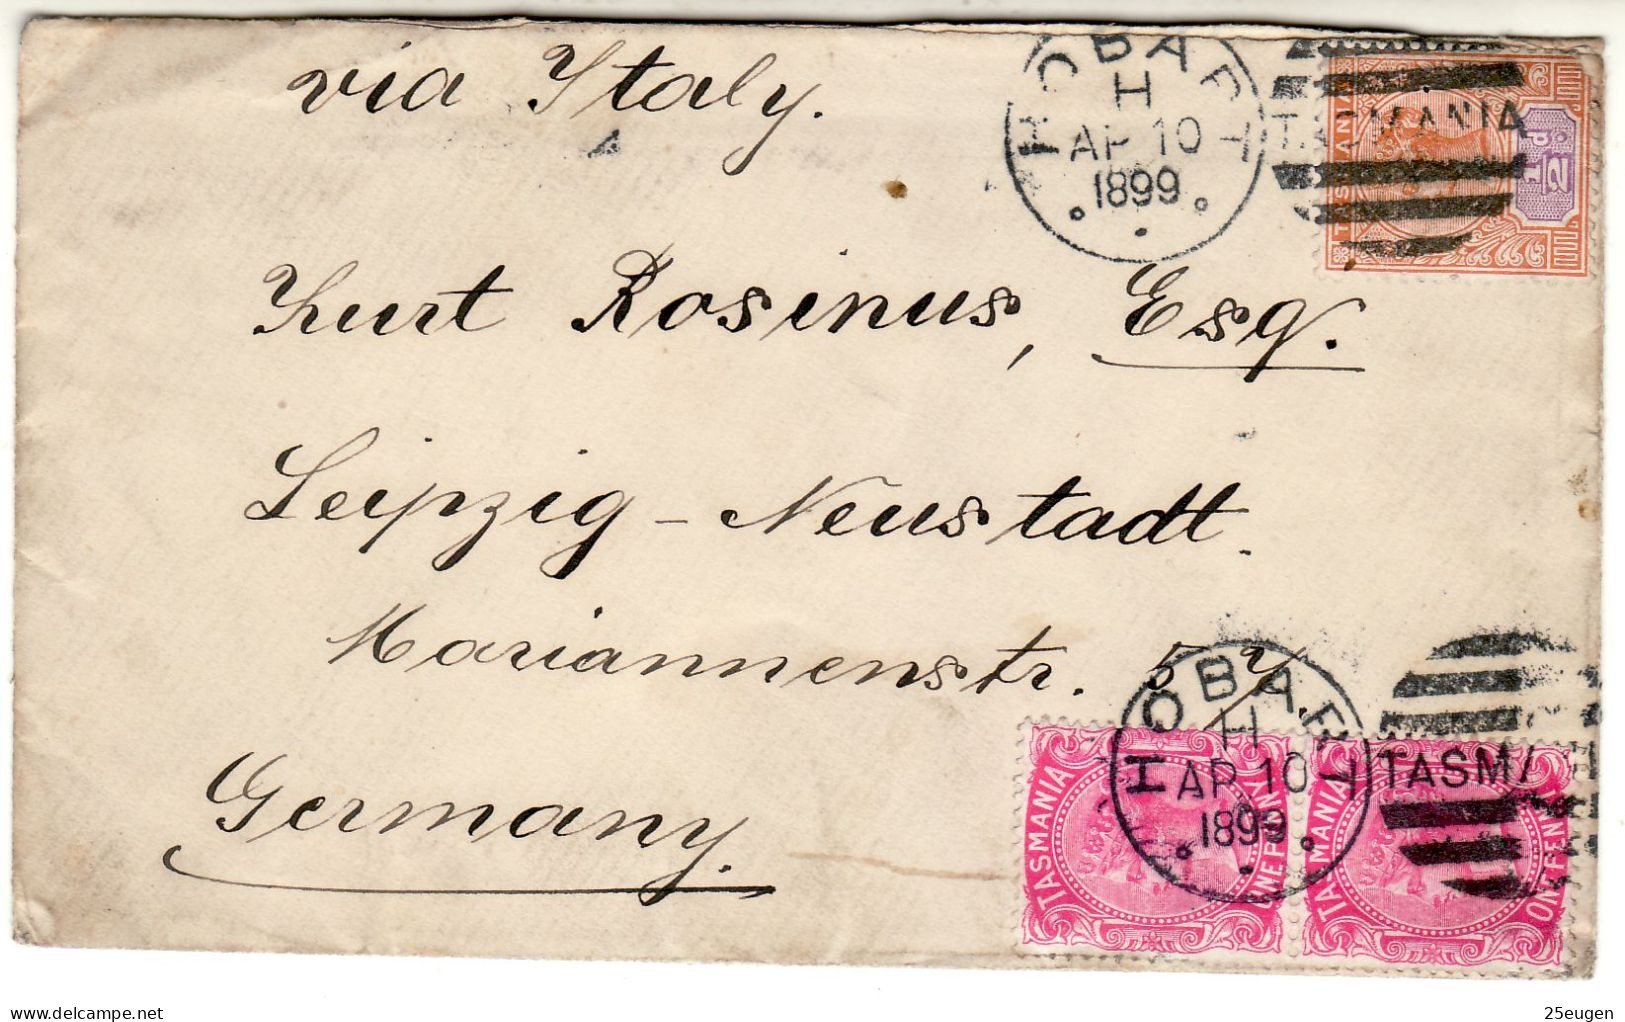 via Italy.
HOBAR T
H
AP 10
1899
TASMANIA
TASMANIA
½D
Kurt Rosinus, Esq.
Leipzig-Neustadt.
Mariannenstr.
Germany.
HOBART
H
AP 10
1899
TASMA
TASMANIA
ONE PENNY
TASMANIA
ONE PENNY
delcampe.net
25eugen